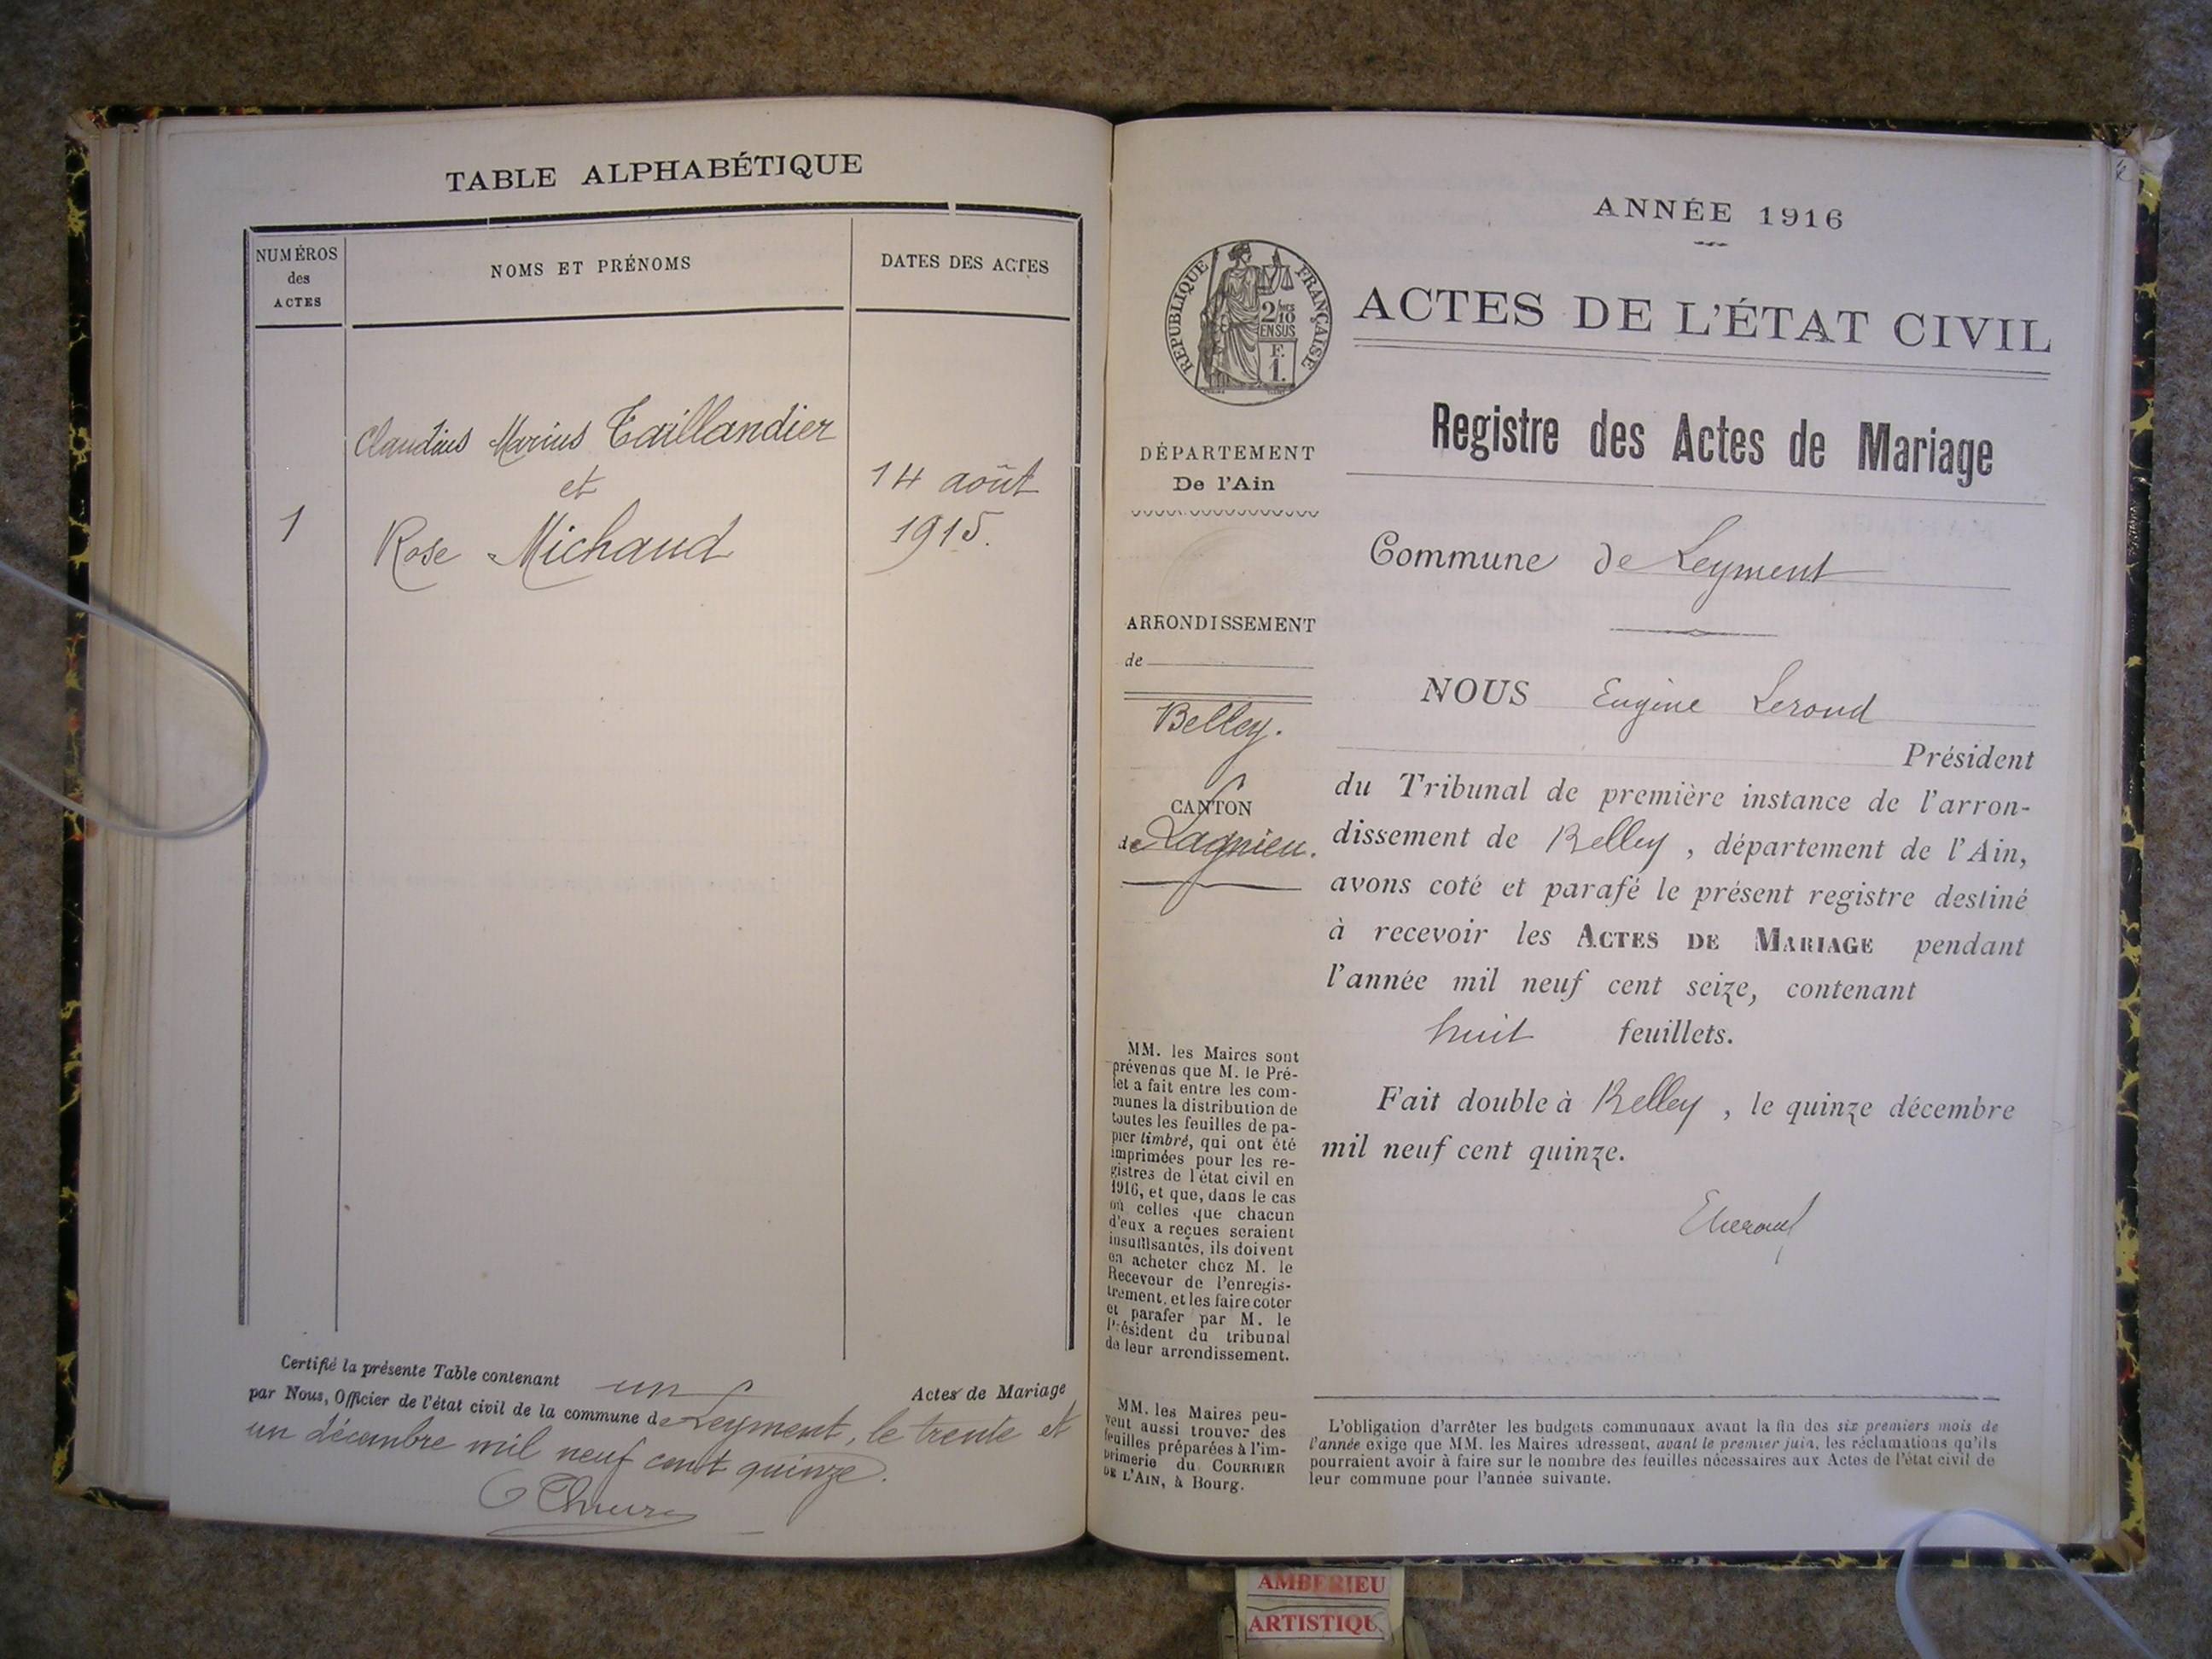 TABLE ALPHABÉTIQUE
NUMÉROS
des
ACTES
NOMS ET PRÉNOMS
DATES DES ACTES
Claudius Marius Taillandier
et
Rose Michaud
1
14 août
1915.
Certifié la présente Table contenant un Actes de Mariage
par Nous, Officier de l'état civil de la commune de Leyment, le trente et
un décembre mil neuf cent quinze.
ANNÉE 1916
RÉPUBLIQUE FRANÇAISE
2/10
EN SUS
F.
1.
ACTES DE L'ÉTAT CIVIL
Registre des Actes de Mariage
DÉPARTEMENT
De l'Ain
ARRONDISSEMENT
de
Belley.
CANTON
de Lagnieu.
Commune de Leyment
NOUS Eugène Leroud
Président
du Tribunal de première instance de l'arron-
dissement de Belley, département de l'Ain,
avons coté et parafé le présent registre destiné
à recevoir les ACTES DE MARIAGE pendant
l'année mil neuf cent seize, contenant
huit feuillets.
Fait double à Belley, le quinze décembre
mil neuf cent quinze.
MM. les Maires sont
prévenus que M. le Pré-
fet a fait entre les com-
munes la distribution de
toutes les feuilles de pa-
pier timbré, qui ont été
imprimées pour les re-
gistres de l'état civil en
1916, et que, dans le cas
où celles que chacun
d'eux a reçues seraient
insuffisantes, ils doivent
en acheter chez M. le
Receveur de l'enregis-
trement, et les faire coter
et parafer par M. le
Président du tribunal
de leur arrondissement.
MM. les Maires peu-
vent aussi trouver des
feuilles préparées à l'im-
primerie du COURRIER
DE L'AIN, à Bourg.
L'obligation d'arrêter les budgets communaux avant la fin des six premiers mois de
l'année exige que MM. les Maires adressent, avant le premier juin, les réclamations qu'ils
pourraient avoir à faire sur le nombre des feuilles nécessaires aux Actes de l'état civil de
leur commune pour l'année suivante.
AMBERIEU
ARTISTIQU